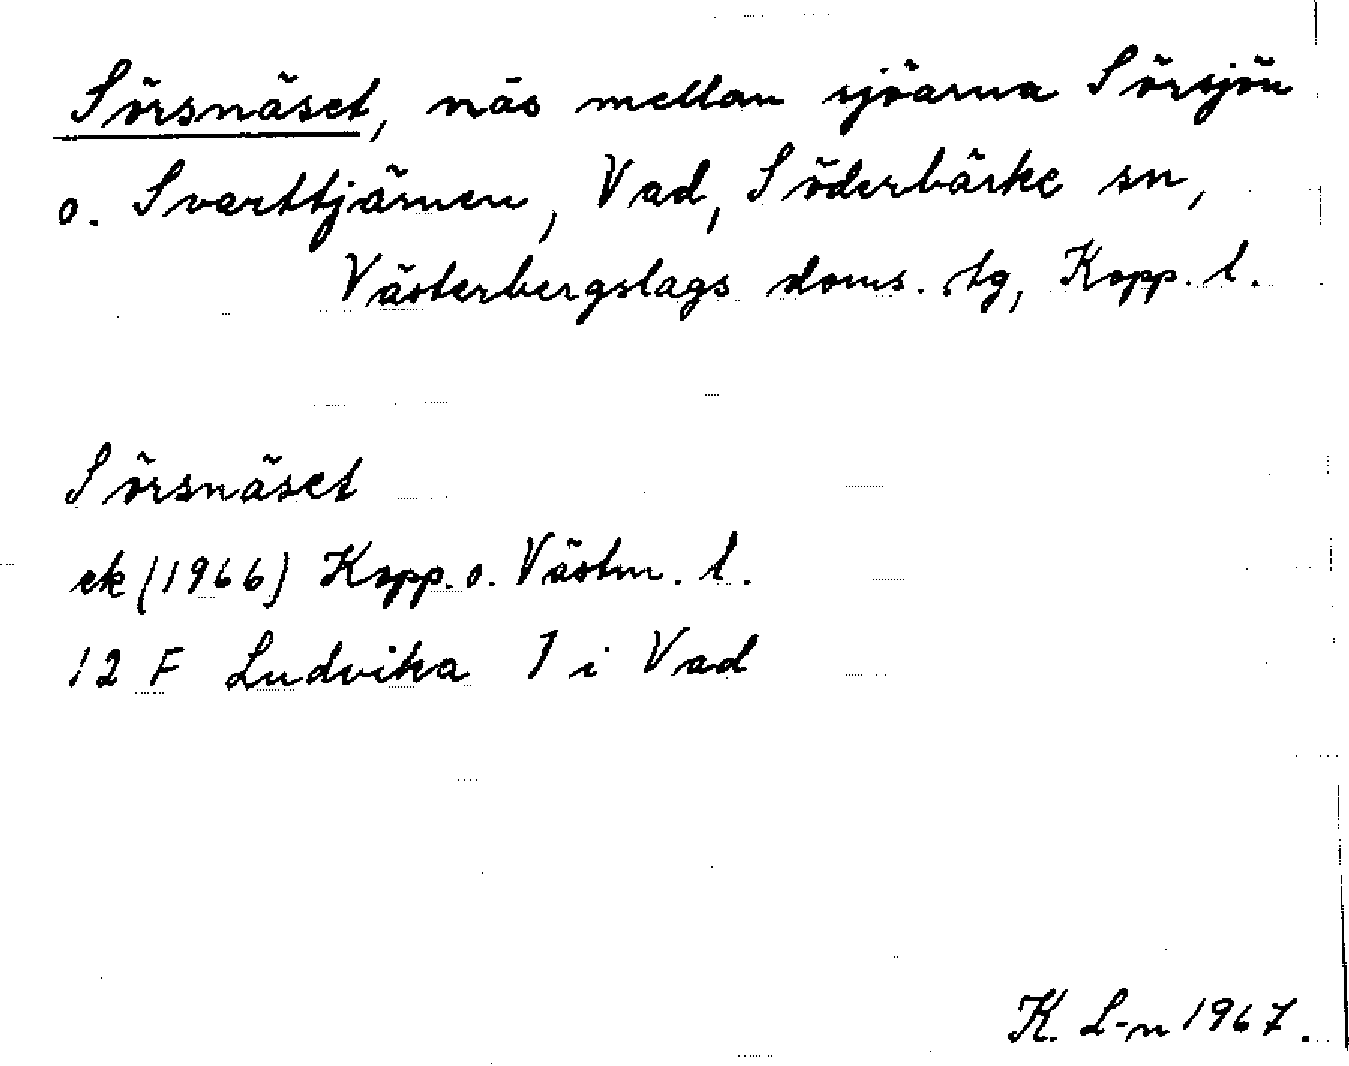 Sörsnäset, näs mellan sjöarna Sörsjön
o. Svarttjärnen, Vad, Söderbärke sn,
Västerbergslags doms. tg, Kopp. l.
Sörsnäset
ek (1966) Kopp. o. Västm. l.
12 F Ludvika I i Vad
K. L-n 1967.